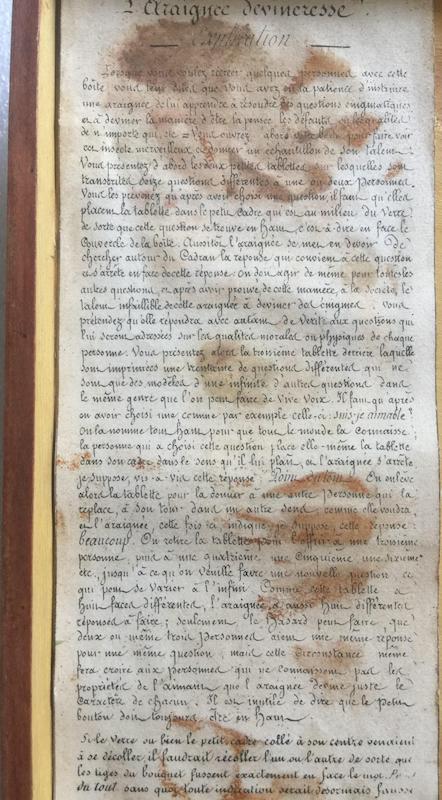 L'Araignée devineresse.
Explication
Lorsque vous voulez récréer quelques personnes avec cette
boîte vous leur dites que vous avez eu la patience d'instruire
une araignée de lui apprendre à résoudre des questions énigmatiques
et à deviner la manière d'être, la pensée, les défauts, les qualités
de n'importe qui, etc = Vous ouvrez alors cette boîte pour faire voir
cet insecte merveilleux et donner un échantillon de son talent.
Vous présentez d'abord les deux petites tablettes lesquelles sont
transcrites douze questions différentes à une ou deux personnes.
Vous les prévenez qu'après avoir choisi une question, il faut qu'elles
placent la tablette dans le petit cadre qui est au milieu du verre
de sorte que cette question se trouve en haut, c'est à dire en face le
couvercle de la boîte. Aussitôt l'araignée se met en devoir de
chercher autour du Cadran la réponse qui convient à cette question
et s'arrête en face de cette réponse. On doit agir de même pour toutes les
autres questions, et après avoir prouvé de cette manière, à la société, le
talent infaillible de cette araignée à deviner des énigmes, vous
prétendez qu'elle répondra avec autant de vérité aux questions qui
lui seront adressées sur les qualités morales ou physiques de chaque
personne. Vous présentez alors la troisième tablette derrière laquelle
sont imprimées une trentaine de questions différentes qui ne
sont que des modèles d'une infinité d'autres questions dans
le même genre que l'on peut faire de vive voix. Il faut qu'après
en avoir choisi une comme par exemple celle-ci: suis-je aimable?
on la nomme tout haut, pour que tout le monde la connaisse;
la personne qui a choisi cette question place elle-même la tablette
dans son cadre dans le sens qu'il lui plaît, et l'araignée s'arrête
je suppose, vis-à-vis cette réponse: Point du tout. On enlève
alors la tablette pour la donner à une autre personne qui la
replace, à son tour dans un autre sens comme elle voudra
et l'araignée, cette fois-ci indique, je suppose, cette réponse:
beaucoup. On retire la tablette pour l'offrir à une troisième
personne, puis à une quatrième, une cinquième, une sixième
etc. jusqu'à ce qu'on veuille faire une nouvelle question, ce
qui peut se varier à l'infini. Comme cette tablette a
huit faces différentes, l'araignée a aussi huit différentes
réponses à faire; seulement, le hasard peut faire que
deux ou même trois personnes aient une même réponse
pour une même question, mais cette circonstance même
fera croire aux personnes qui ne connaissent pas les
propriétés de l'aimant, que l'araignée devine juste le
caractère de chacun. Il est inutile de dire que le petit
bouton doit toujours être en haut.
Si le verre ou bien le petit cadre collé à son centre venaient
à se décoller, il faudrait recoller l'un ou l'autre de sorte que
les tiges du bouquet fussent exactement en face le mot Point
du tout sans quoi toute indication serait désormais fausse